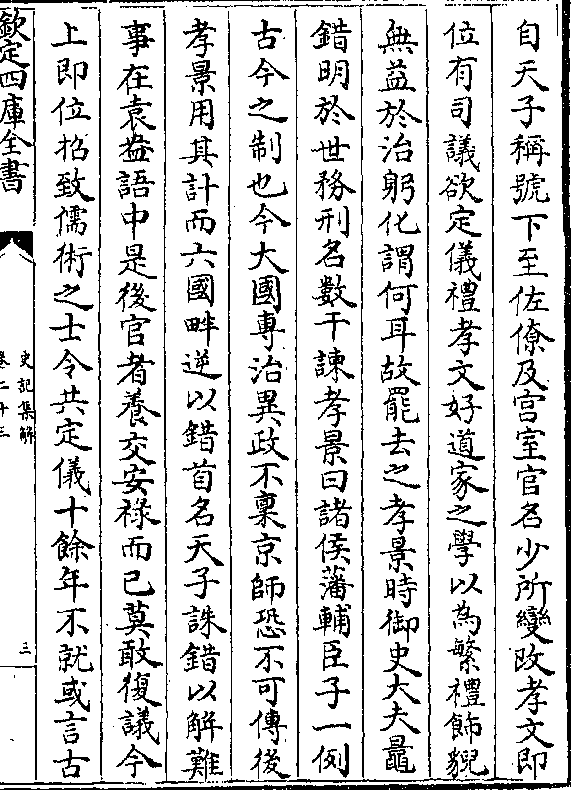 自天子稱號下至佐僚及宫室官名少所變改孝文即
位有司議欲定儀禮孝文好道家之學以為繁禮飾貌
無益於治躬化謂何耳故罷去之孝景時御史大夫鼂
錯明於世務刑名數干諫孝景曰諸侯藩輔臣子一例
古今之制也今大國專治異政不稟京師恐不可傳後
孝景用其計而六國畔逆以錯首名天子誅錯以解難
事在袁盎語中是後官者養交安禄而已莫敢復議今
上即位招致儒術之士令共定儀十餘年不就或言古
欽定四庫全書
史記集解
卷二十三
三